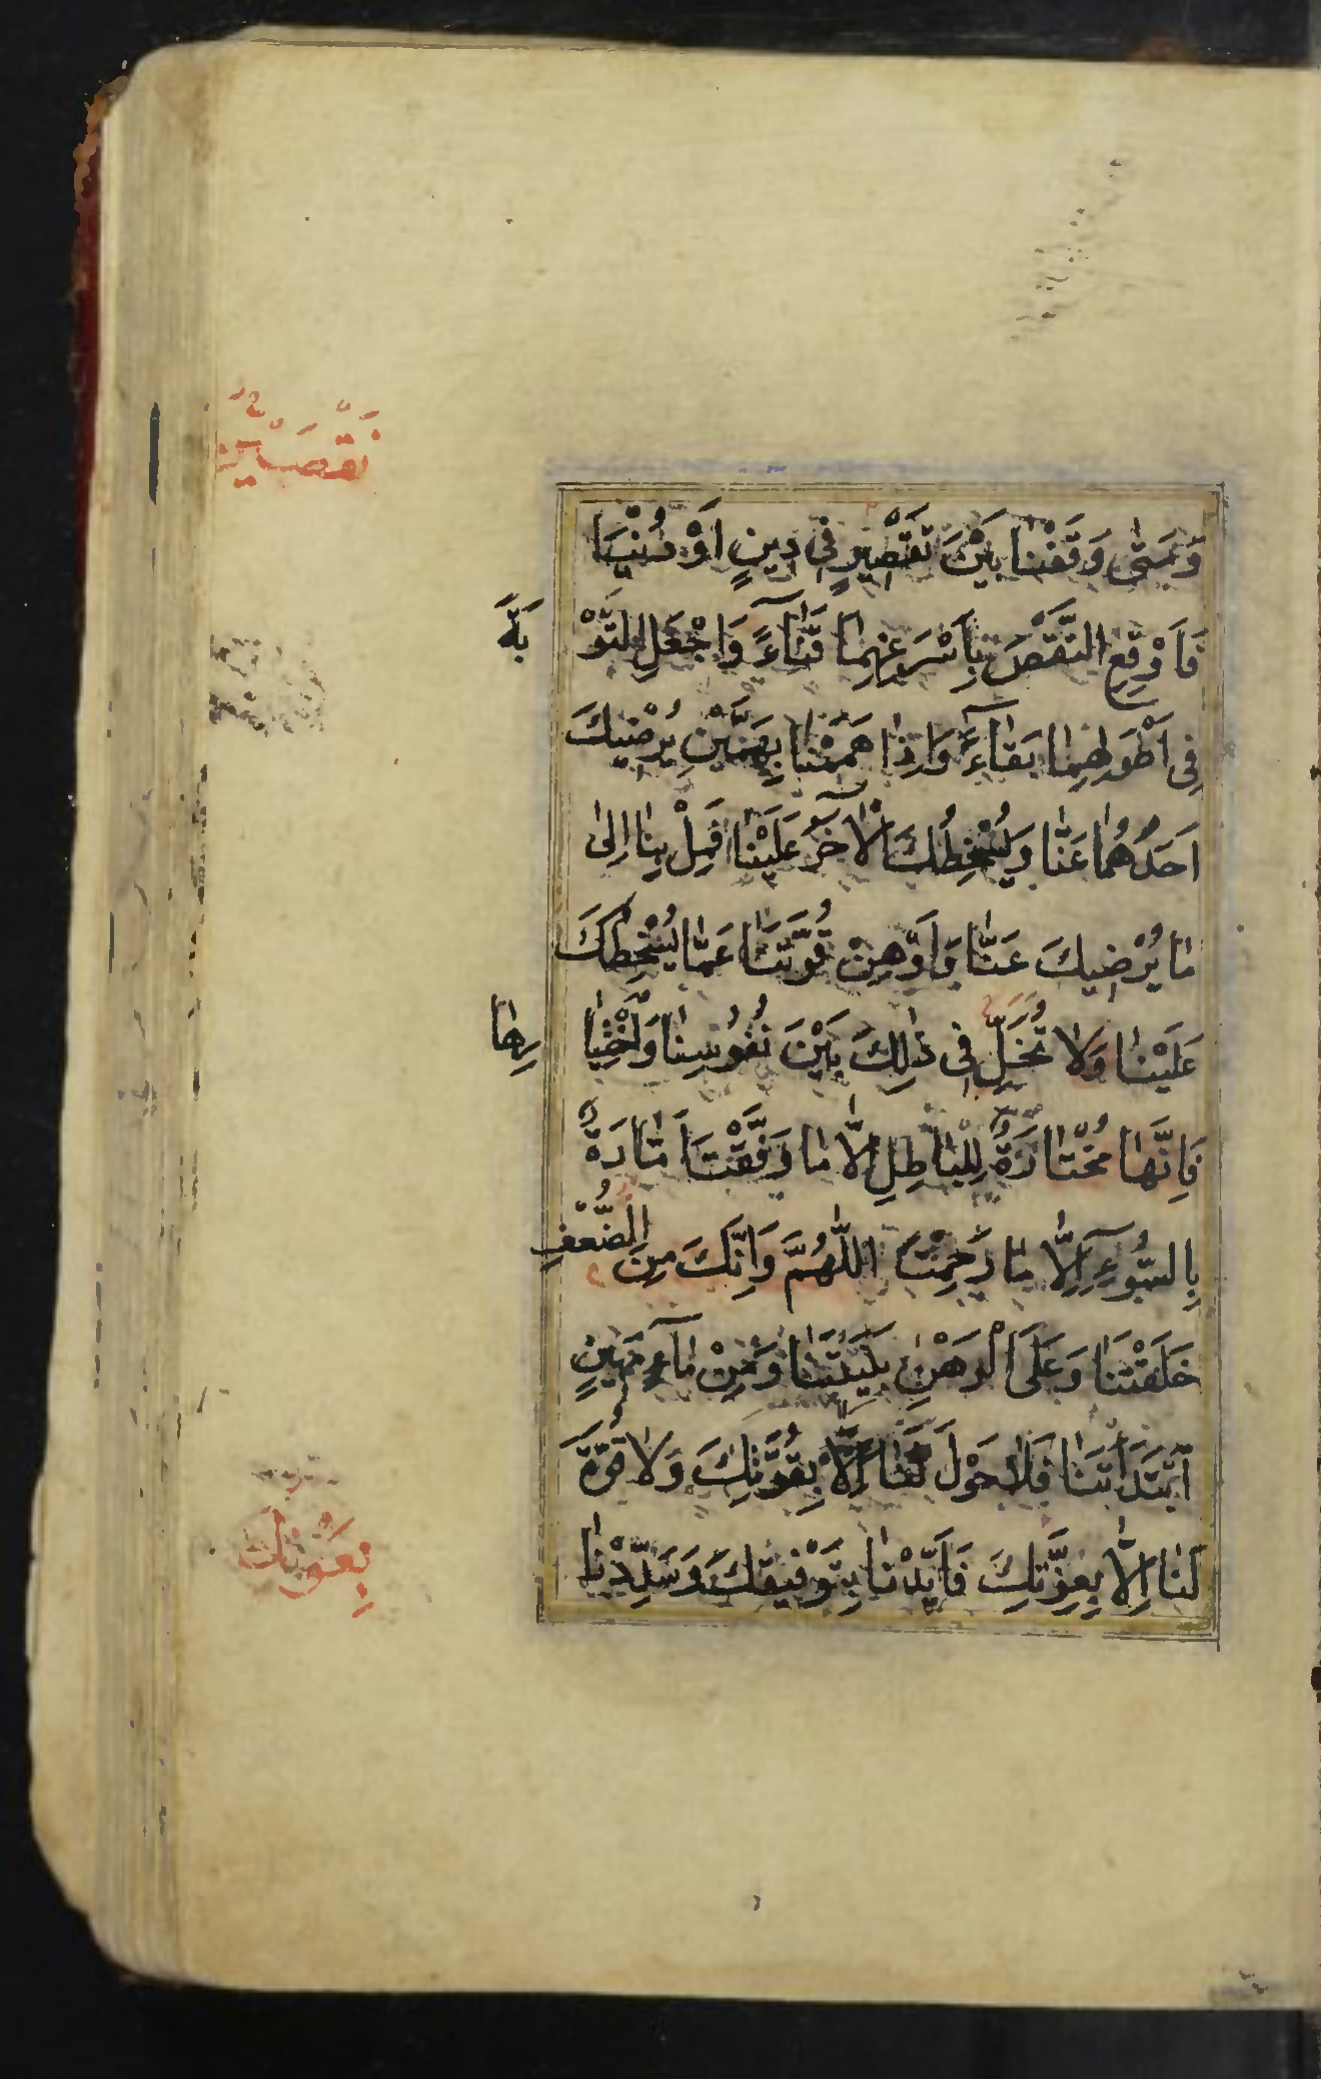 وَمَتٰى وَقَفْنٰا بَيْنَ تَقْصِيرٍ فِى دِينٍ اَوْ دُنْيٰا
فَاَوْقِعِ النَّقْصَ بِاَسْرَعِهِمٰا فَنٰاءً وَاجْعَلِ التَّوْبَةَ
فِى اَطْوَلِهِمٰا بَقٰاءً وَاِذٰا هَمَمْنٰا بِهَمَّيْنِ يُرْضيكَ
اَحَدُهُمٰا عَنّٰا وَيُسْخِطُكَ الْاٰخَرُ عَلَيْنٰا فَمِلْ بِنٰا اِلىٰ
مٰا يُرْضيكَ عَنّٰا وَاَوْهِنْ قُوَّتَنٰا عَمّٰا يُسْخِطُكَ
عَلَيْنٰا وَلٰا تُخَلِّ فِى ذٰلِكَ بَيْنَ نُفُوسِنٰا وَاخْتِيٰارِهٰا
فَاِنَّهٰا مُخْتٰارَةٌ لِلْبٰاطِلِ اِلّٰا مٰا وَفَّقْتَ اَمّٰارَةٌ
بِالسُّوءِ اِلّٰا مٰا رَحِمْتَ اَللّٰهُمَّ وَاِنَّكَ مِنَ الضُّعْفِ
خَلَقْتَنٰا وَعَلَى الْوَهْنِ بَنَيْتَنٰا وَمِنْ مٰاءٍ مَهينٍ
اَبْتَدَأْتَنٰا فَلٰا حَوْلَ لَنٰا اِلّٰا بِقُوَّتِكَ وَلٰا قُوَّةَ
لَنٰا اِلّٰا بِعِزَّتِكَ فَاَيِّدْنٰا بِتَوْفيقِكَ وَسَدِّدْنٰا
بِعَوْنِكَ